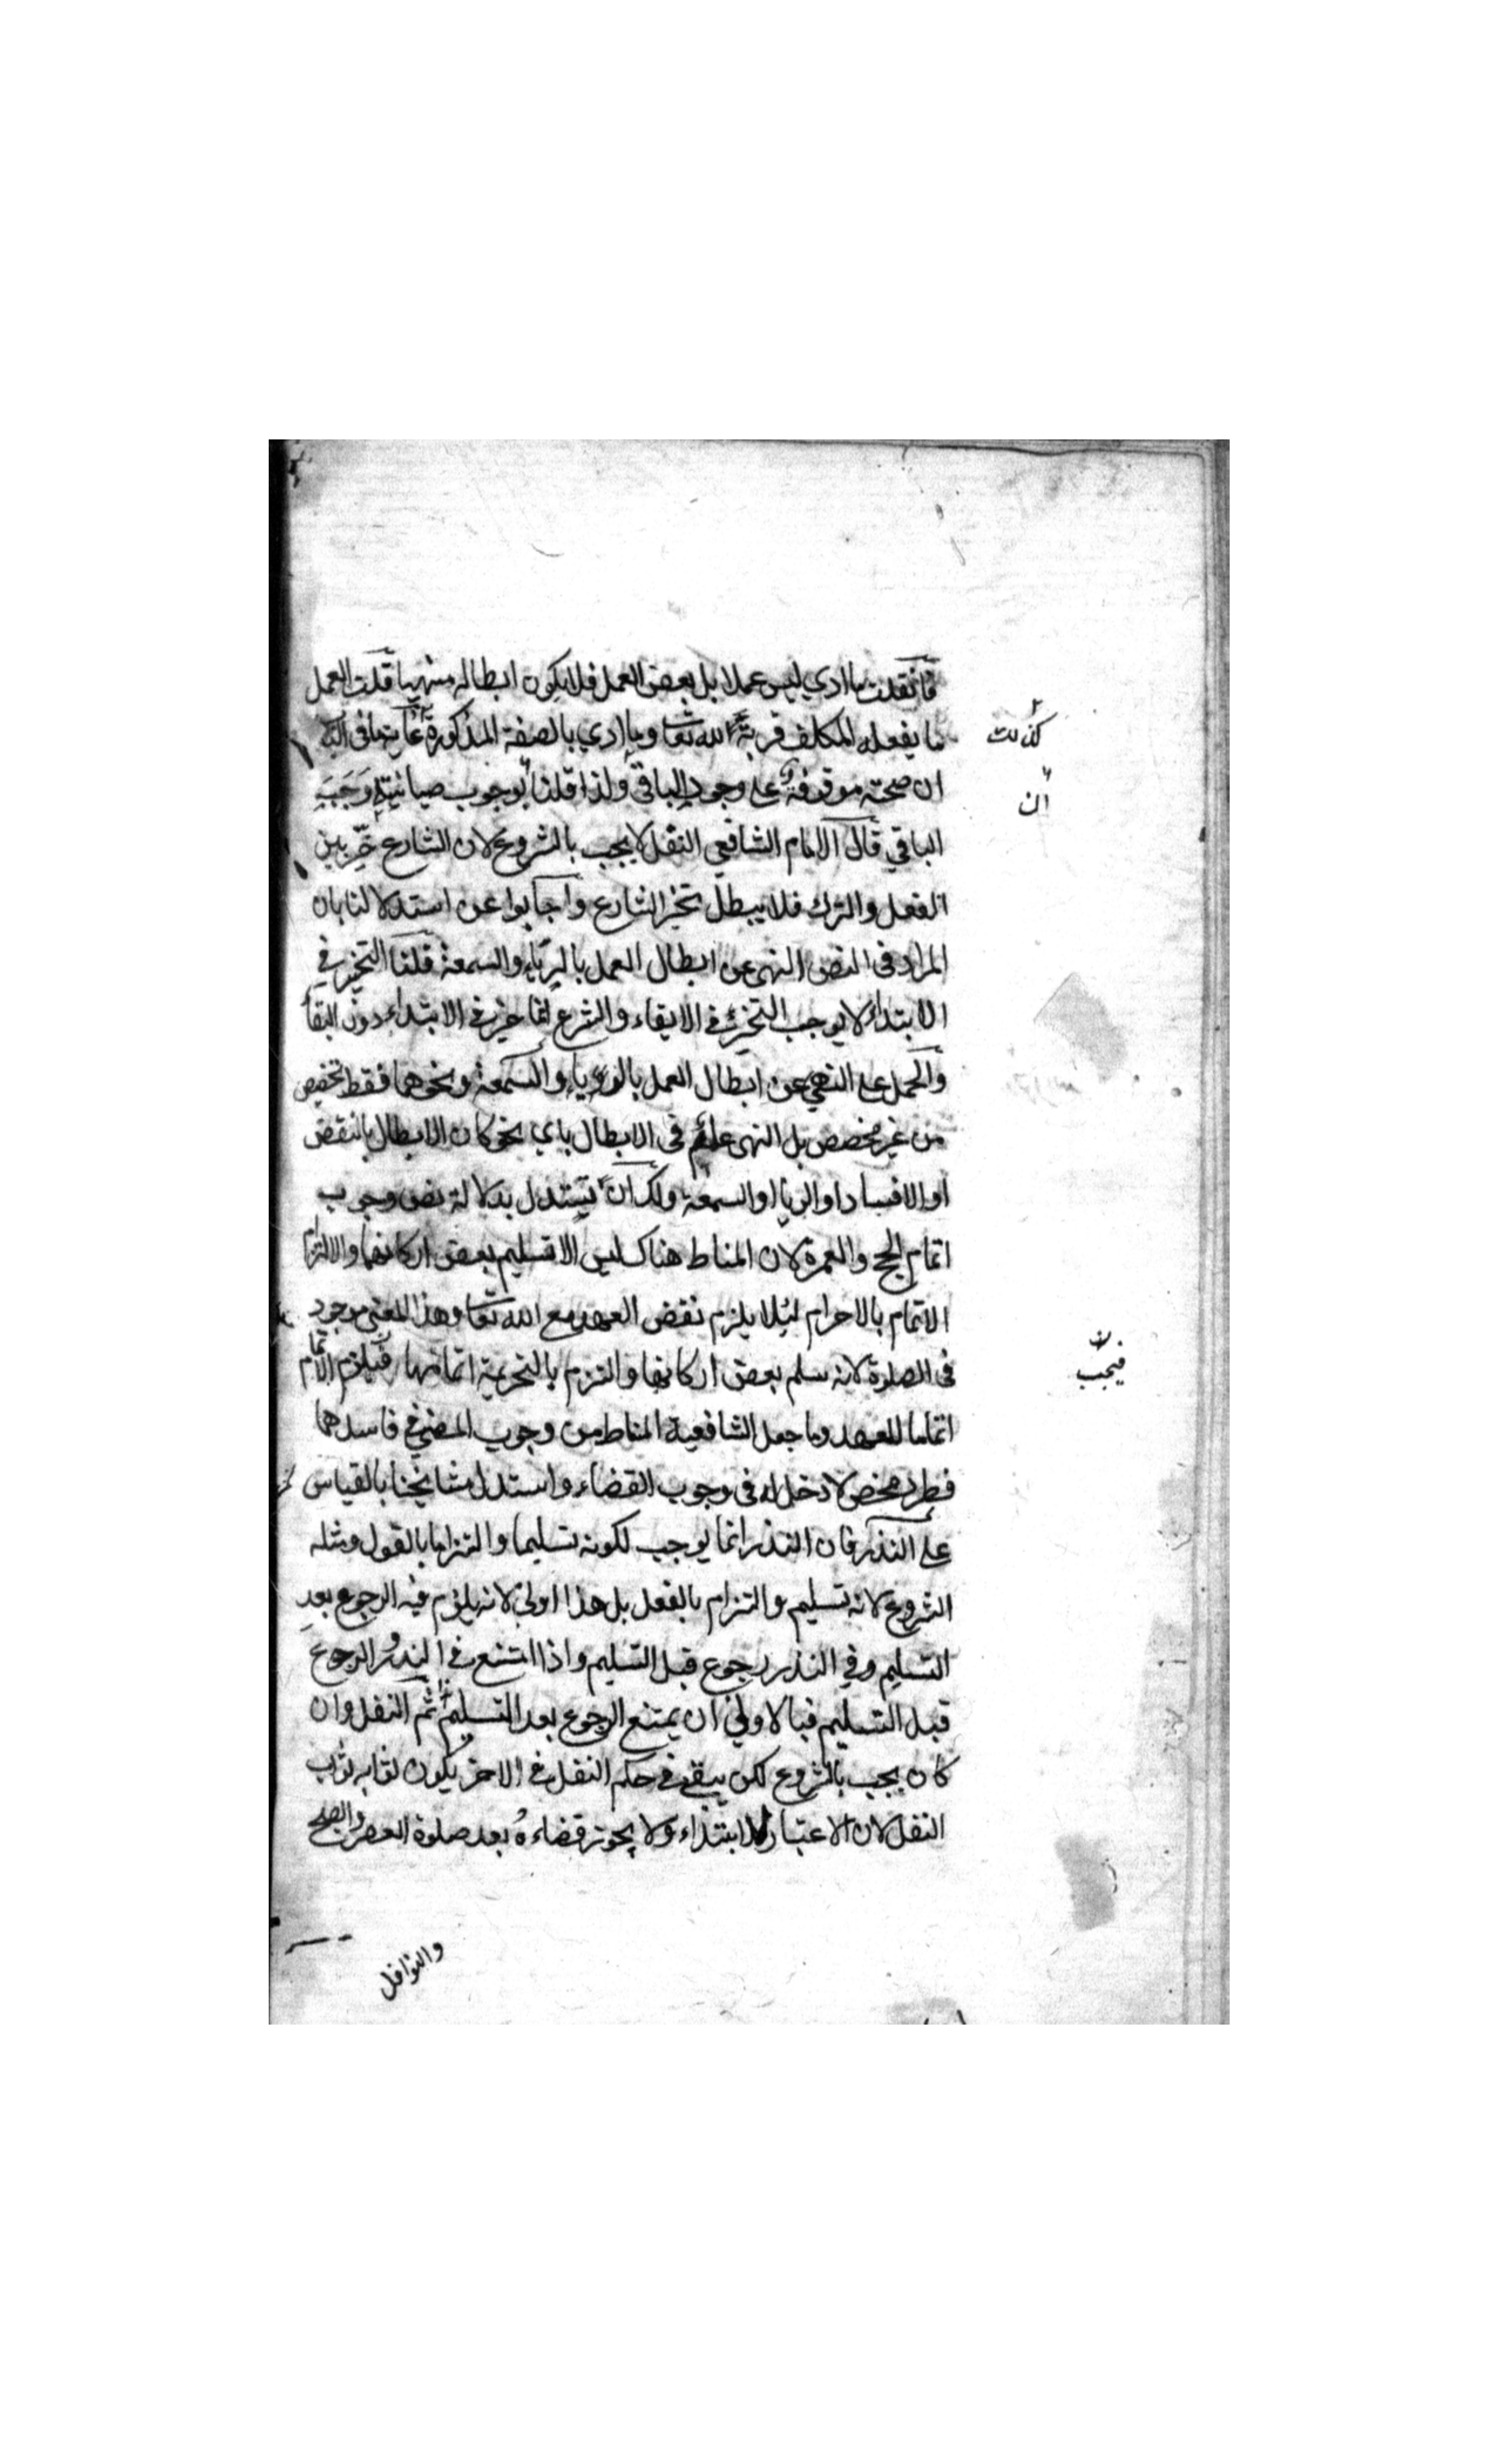 فان قلت ما ادي ليس عملا بل بعض العمل فلا يكون ابطاله منهيا قلت العمل
ما يفعله المكلف قربة الى الله تعا وما ادي بالصفة المذكورة غاية ما فى الباب
كذلك
ان صحته موقوفة على وجود الباقي ولذا قلنا بوجوب صيانته وجب
ان
الباقي قال الامام الشافعي النفل لا يجب بالشروع لان الشارع خير بين
الفعل والترك فلا يبطل تخير الشارع واجابوا عن استدلالنا بان
المراد فى النص النهى عن ابطال العمل بالرياء والسمعة قلنا التخير في
الابتداء لا يوجب التخير في الابقاء والشرع انما خير في الابتداء دون البقأ
والحمل على النهي عن ابطال العمل بالرياء والسمعة ونحوهما فقط تخصيص
من غير مخصص بل النهى عام فى الابطال باي نحو كان الابطال بالنقض
او الافساد او الريا او السمعة ولك ان تستدل بدلالة نص وجوب
اتمام الحج والعمرة لان المناط هناك ليس الا تسليم بعض اركانهما والالتزام
الاتمام بالاحرام لئلا يلزم نقض العهد مع الله تعا وهذا المعنى موجود
فى الصلوة لانه سلم بعض اركانها والتزم بالتحريمة اتمامها فيلزم الاتمام
فيجب
اتماما للعهد وما جعل الشافعية المناط من وجوب المضي في فاسدهما
فطرد محض لا دخل له فى وجوب القضاء واستدل مشايخنا بالقياس
على النذر فان النذر انما يوجب لكونه تسليما والتزاما بالقول ومثله
الشروع لانه تسليم والتزام بالفعل بل هذا اولى لانه يلزم فيه الرجوع بعد
التسليم وفي النذر رجوع قبل التسليم واذا امتنع في النذر الرجوع
قبل التسليم فبالاولى ان يمتنع الرجوع بعد التسليم ثم النفل وان
كان يجب بالشروع لكن يبقى في حكم النفل في الاخر يكون ثوابه ثواب
النفل لان الاعتبار للابتداء ولا يجوز قضاءه بعد صلوة العصر والصبح
والنوافل